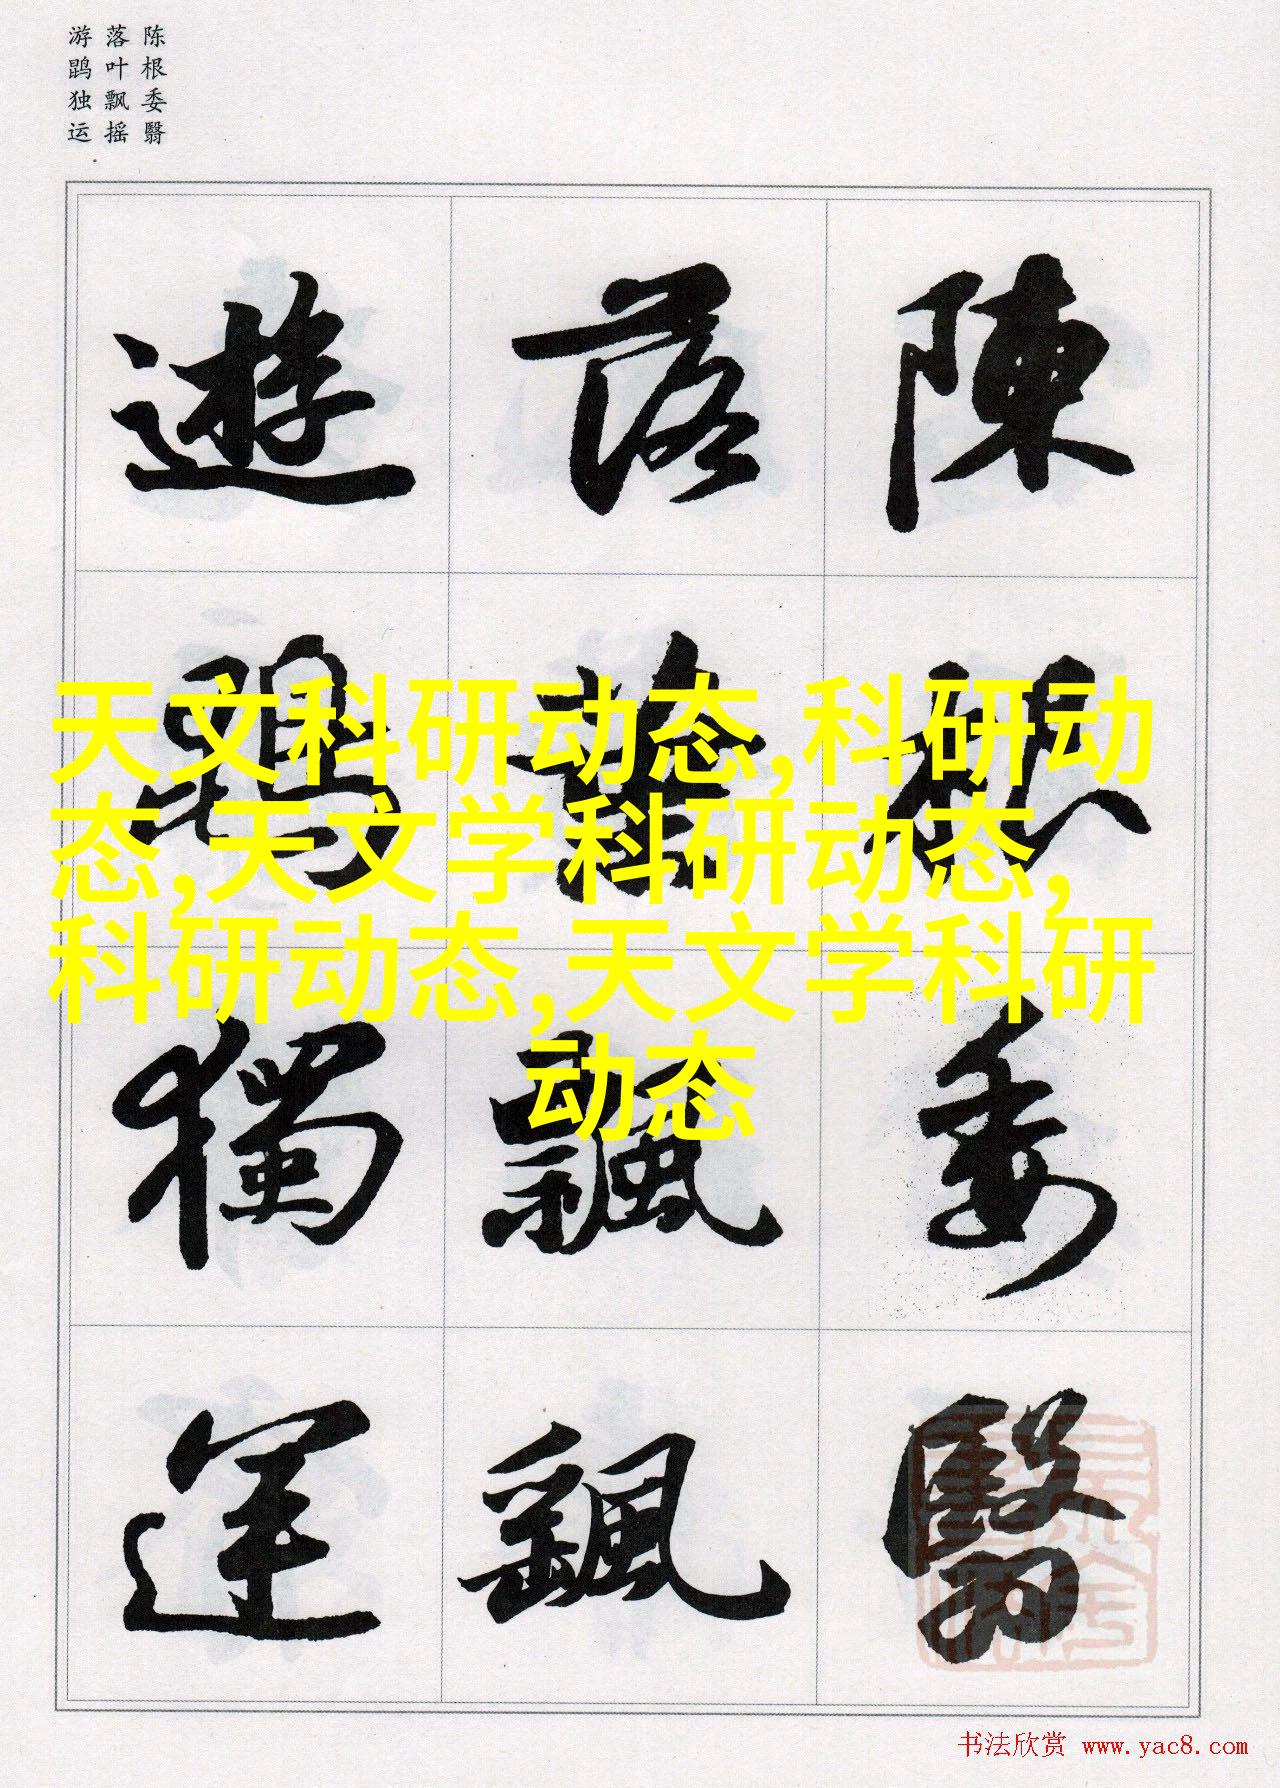 陈根委翳
落叶飘摇
游鹍独运
陳根委翳
落葉飄颻
遊鵾獨運
天文科研动态,科研动
态,天文学科研动态,
科研动态,天文学科研
动态
书法欣赏 www.yac8.com